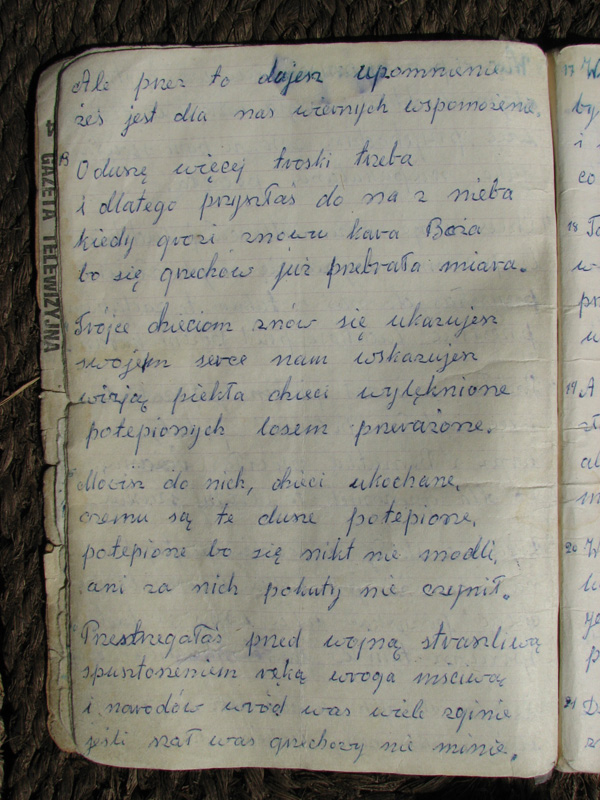 Ale przez to dajesz upomnienie
żeś jest dla nas wiernych wspomożenie.
13 O duszę więcej troski trzeba
i dlatego przyszłaś do na z nieba
kiedy grozi znowu kara Boża
bo się grzechów już przebrała miara.
Trójce dzieciom znów się ukazujesz
swojem serce nam wskazujesz
wizją piekła dzieci wylęknione
potępionych losem przerażone.
Mówisz do nich, dzieci ukochane,
czemu są te dusze potępione,
potępione bo się nikt nie modli,
ani za nich pokuty nie czynił.
Przestrzegałaś przed wojną straszliwą
spustoszeniem ręką wroga mściwą
i narodów wśród was wiele zginie
jeśli szał was grzeszny nie minie.
GAZETA TELEWIZYJNA
17 W
by
i
co
18 To
w
pr
u
19 A
al
20 W
p
21 D